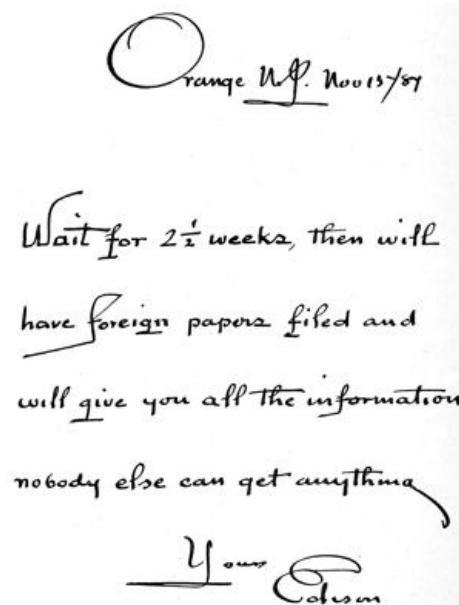 Orange N.J. Nov 15/87
Wait for 2 1/2 weeks, then will
have foreign papers filed and
will give you all the information
nobody else can get anything
Yours
Edison